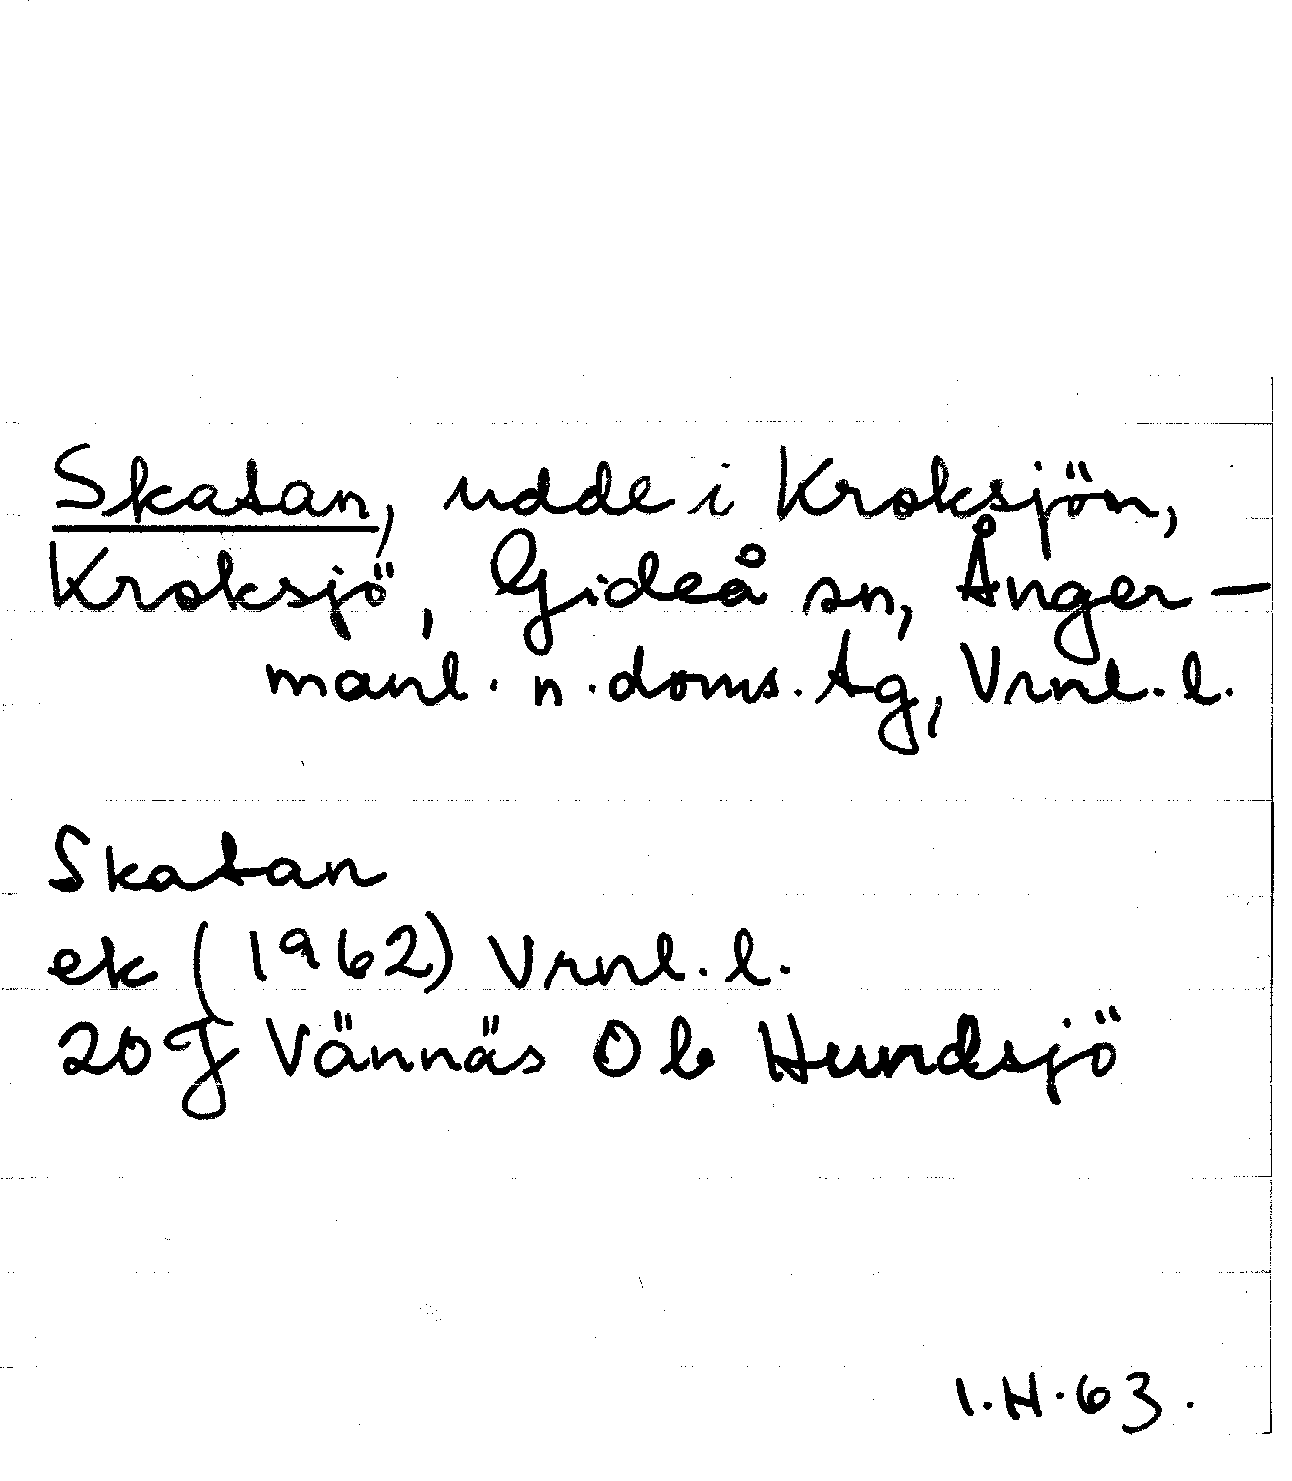 Skatan, udde i Kroksjön,
Kroksjö, Gideå sn, Ånger-
manl. n. doms. tg, Vrnl. l.
Skatan
ek (1962) Vrnl. l.
20 J Vännäs 0 b Hundsjö
I.H.63.